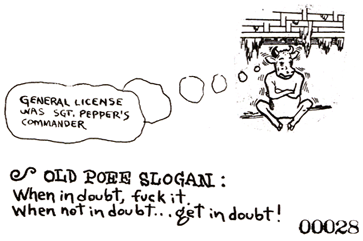 GENERAL LICENSE
WAS SGT. PEPPER'S
COMMANDER
OLD POEE SLOGAN:
When in doubt, fuck it.
When not in doubt... get in doubt!
00028